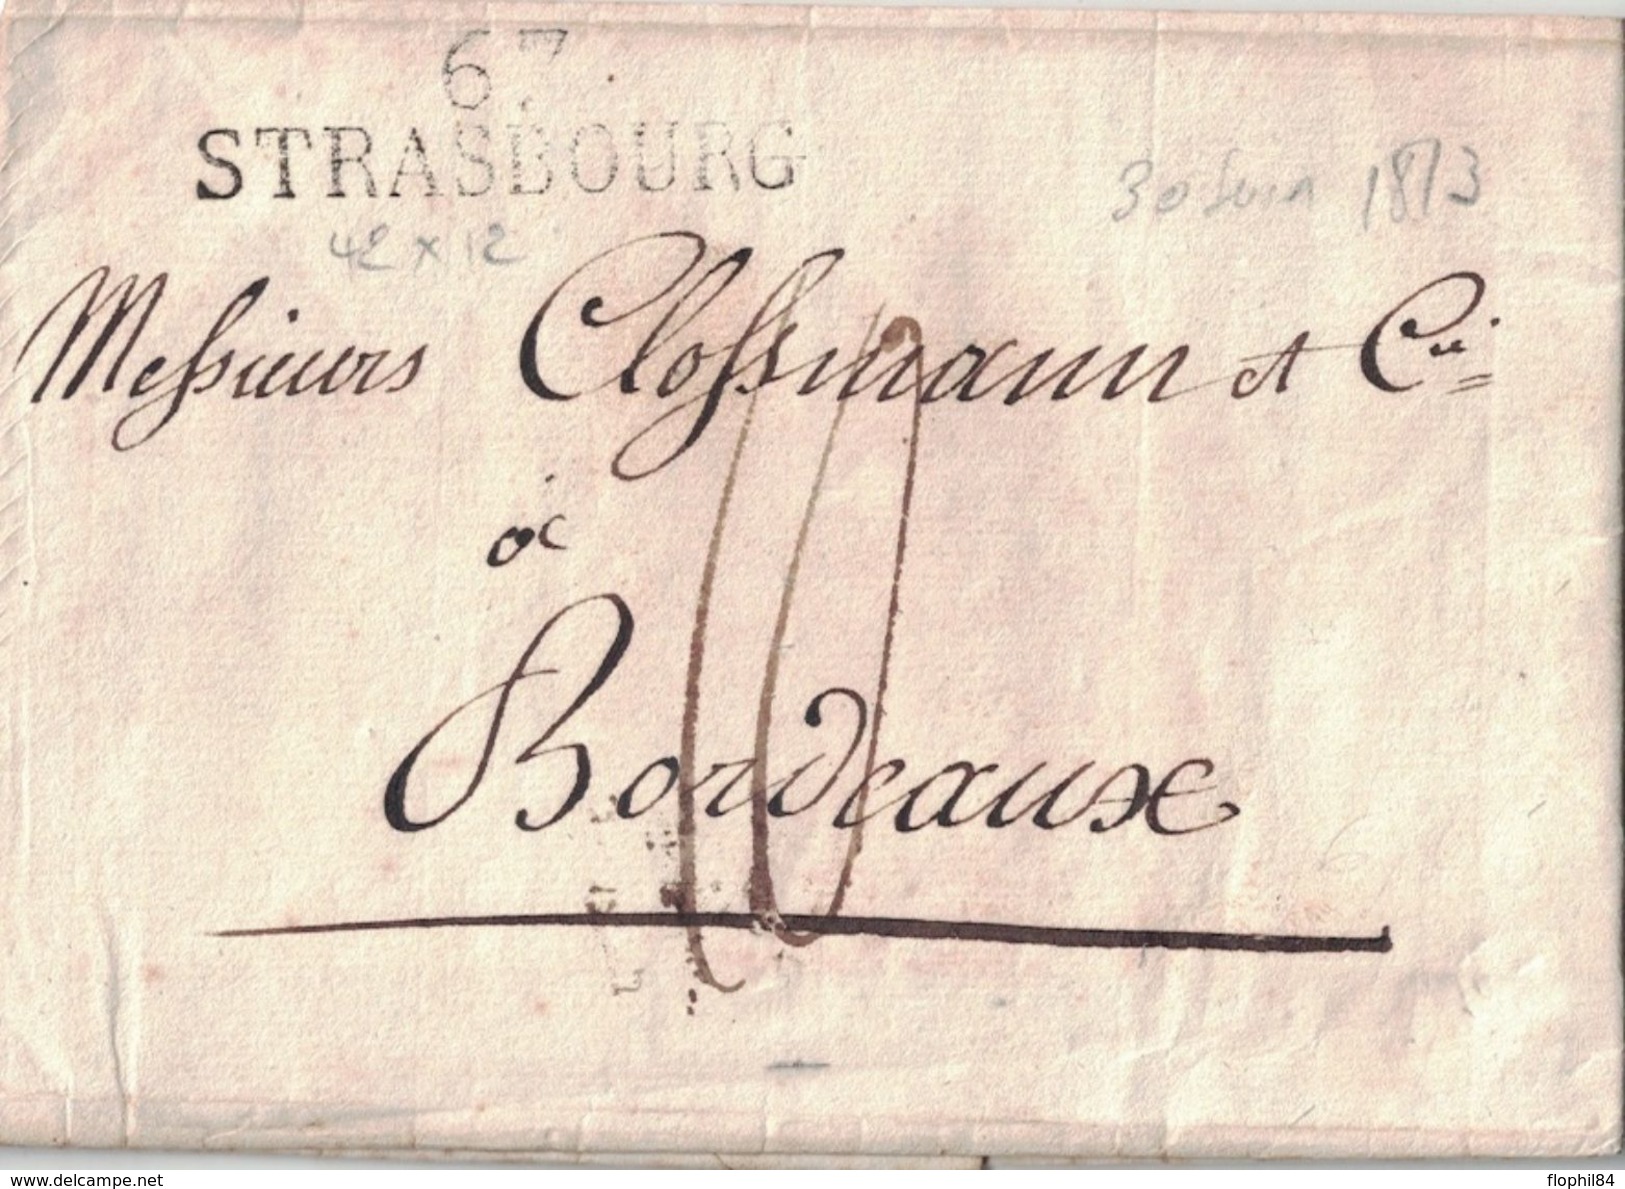 67
STRASBOURG
30 Juin 1813
42 x 12
Messieurs Clossmann et Cie
à
Bordeaux
10
delcampe.net
flophil84